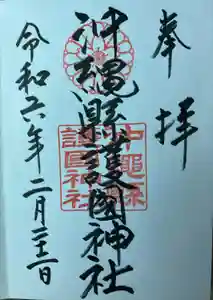 奉拝
沖縄縣護國神社
令和六年二月日
沖縄縣
護國神社